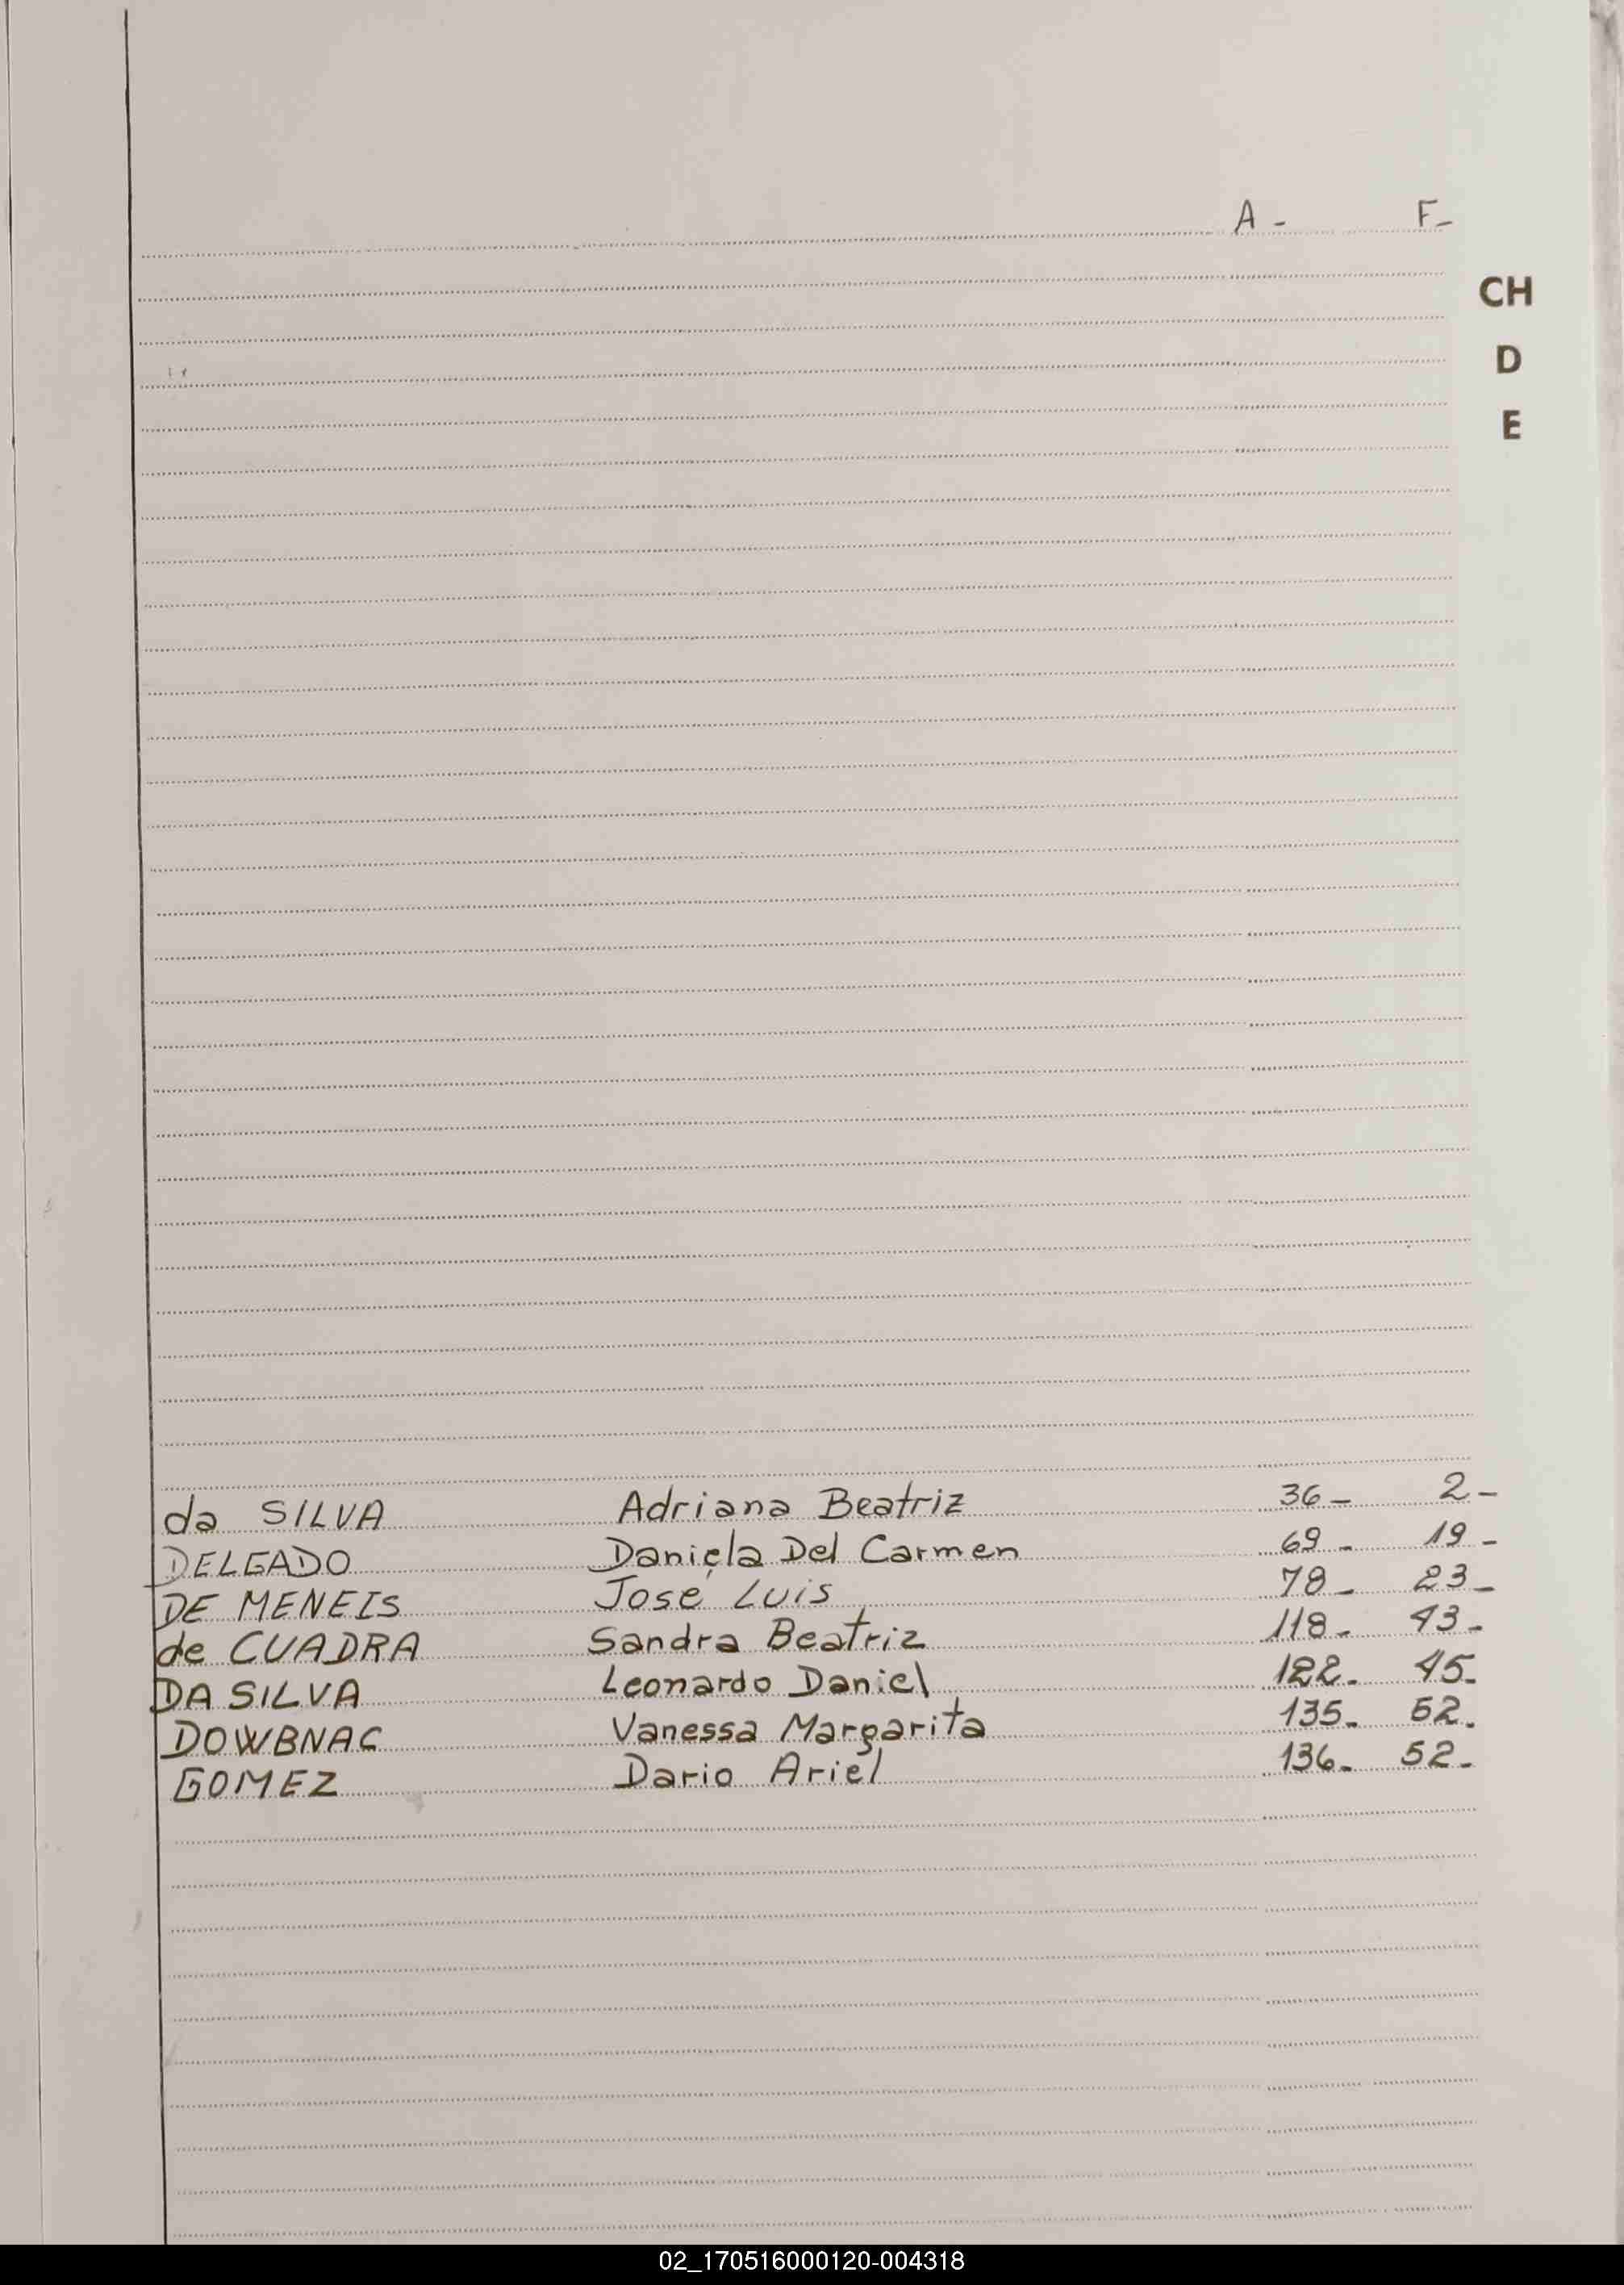 A - F-
CH
D
E
da SILVA Adriana Beatriz 36- 2-
DELGADO Daniela Del Carmen 69- 19-
DE MENEIS José Luis 78- 23-
de CUADRA Sandra Beatriz 118- 43-
DA SILVA Leonardo Daniel 122- 45-
DOWBNAC Vanessa Margarita 135- 52-
GOMEZ Dario Ariel 136- 52-
02_170516000120-004318